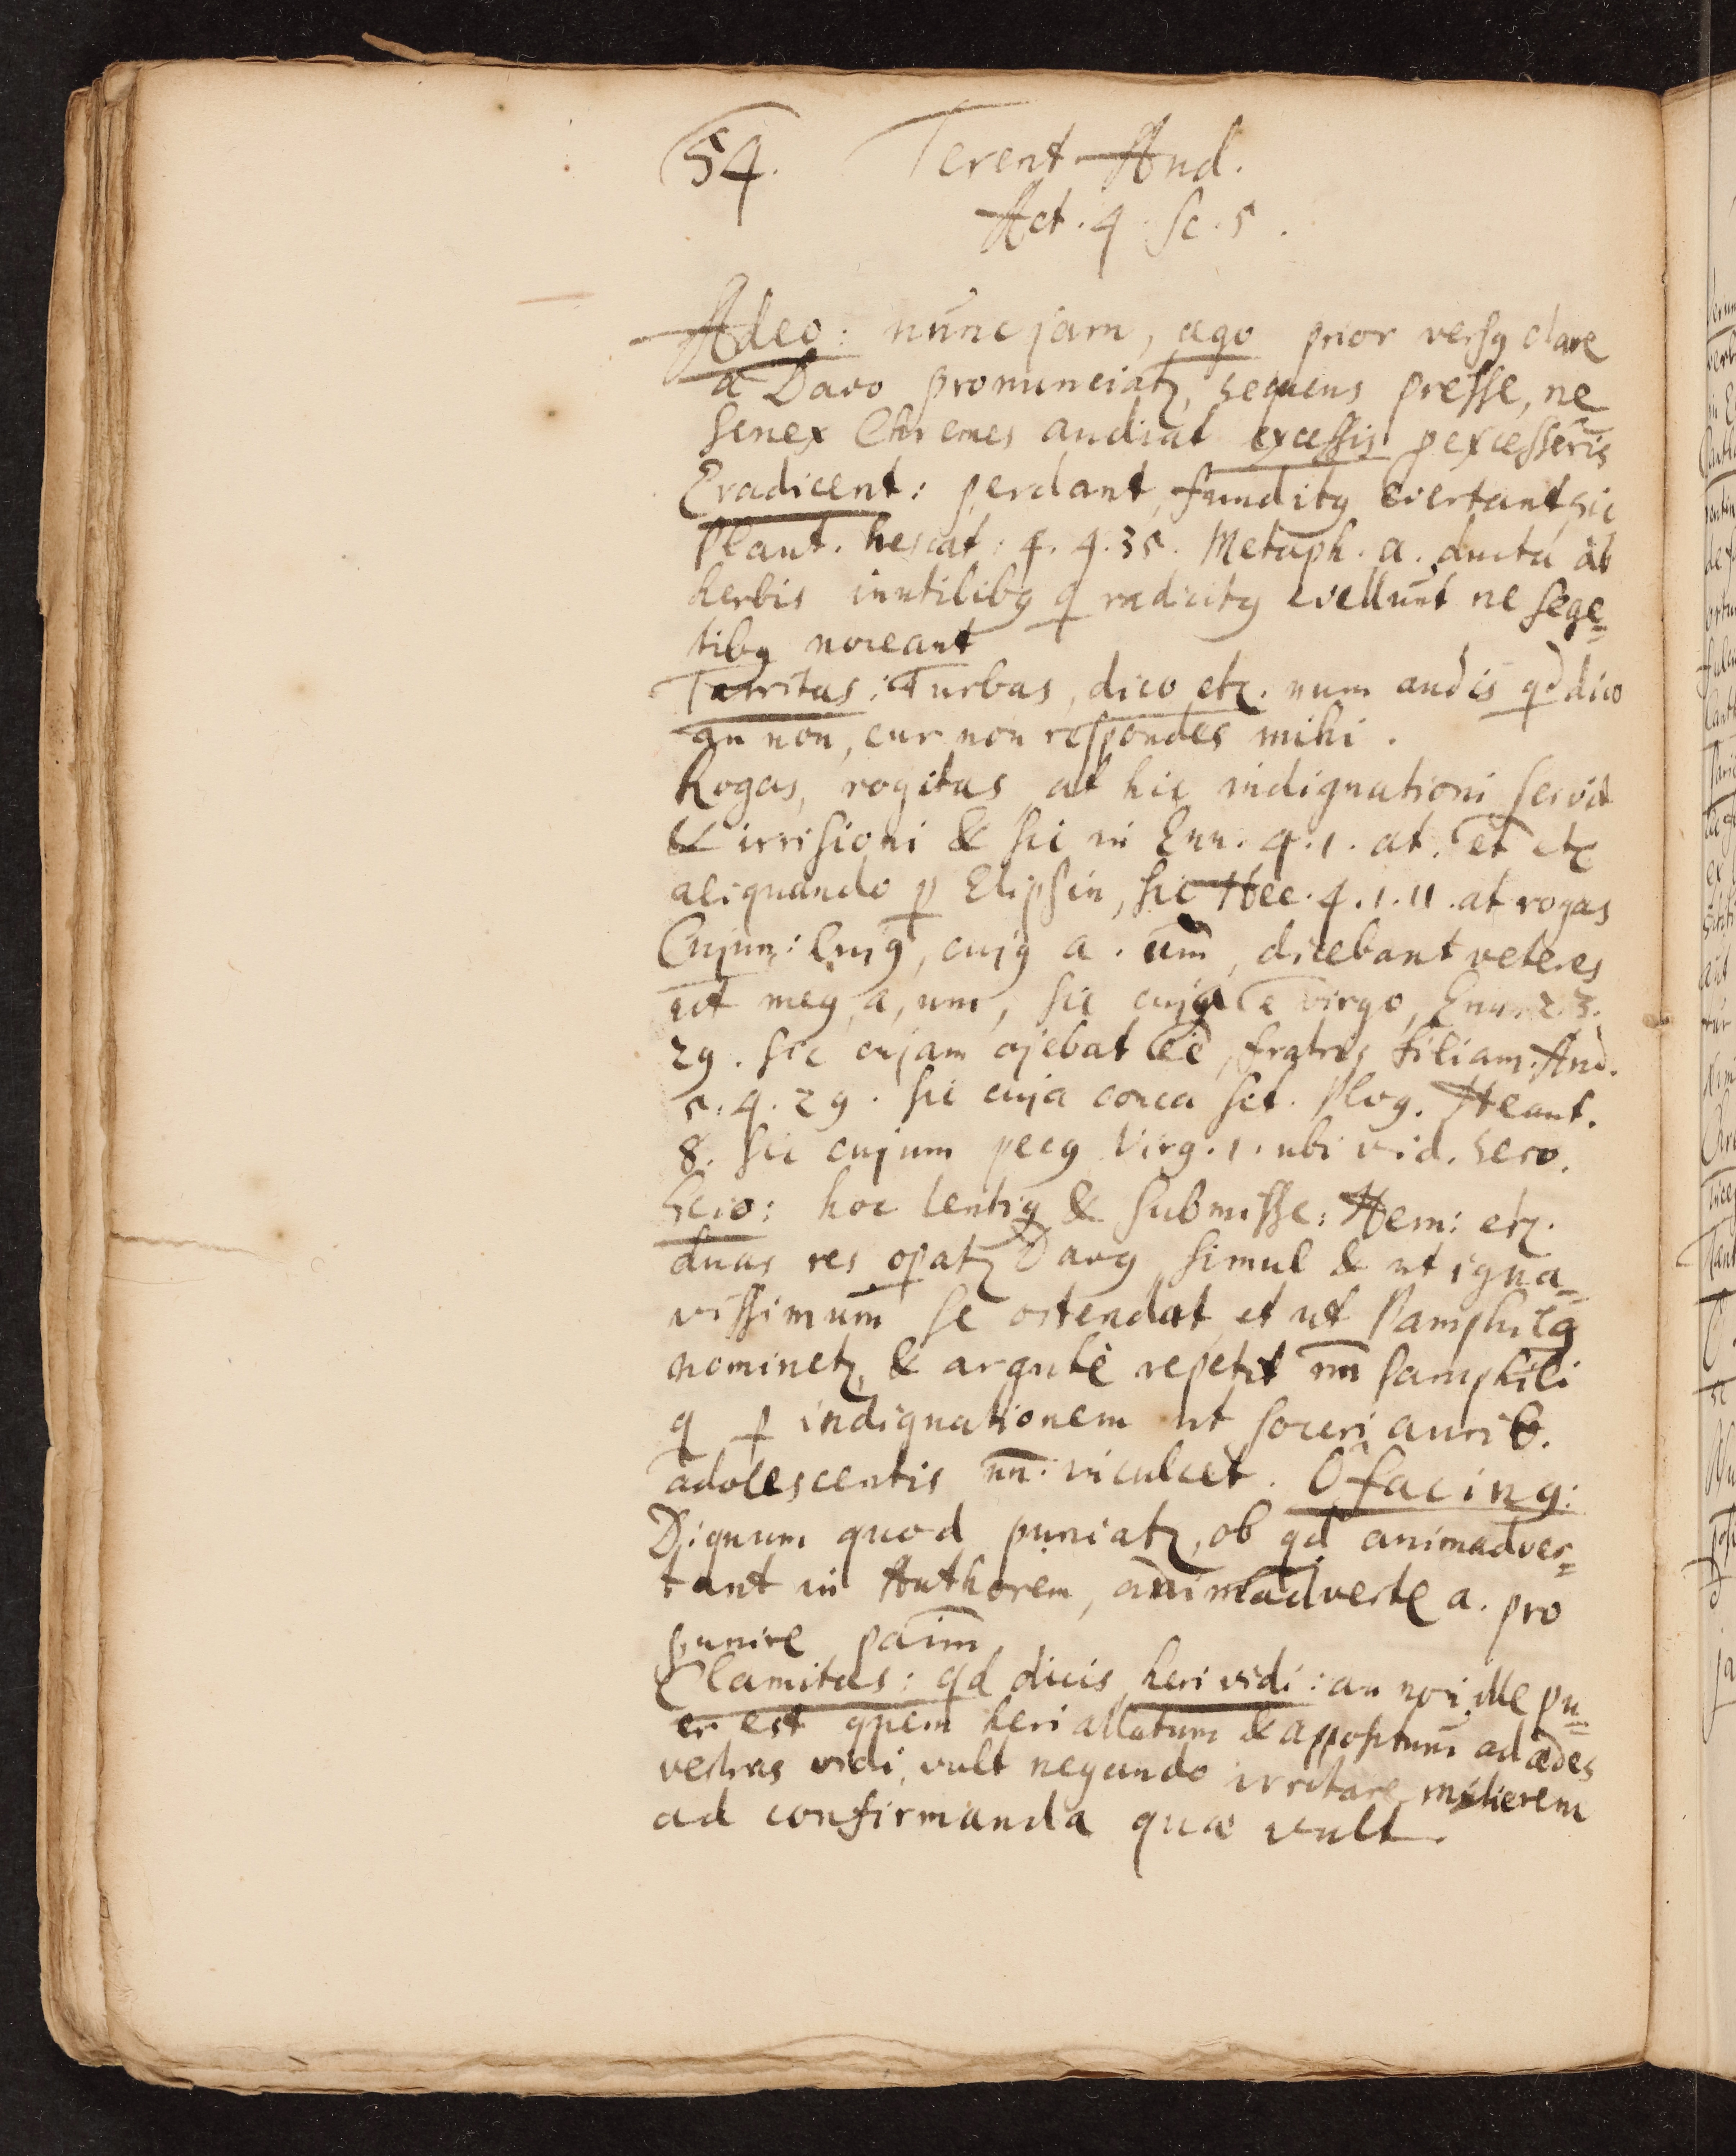 54. Terent And.
Act. 4. Sc. 5.
Adeo: nunc jam, ago prior versꝯ clare
a Davo pronunciatꝫ, sequens presse, ne
senex Chremes audiat excessis p excesseris
Eradicent: perdant, funditꝯ evertant, sic
Plaut. 4. 4. 35. Metaph. a. ducta ab
herbis inutilibꝯ q radicitꝯ evellunt ne sege=
tibꝯ noceant
Territas: Turbas, dico etc. num audis qd dico
an non, cur non respondes mihi.
Rogas, rogitas, at hic indignationi servit
& irrisioni & sic in Eun. 4. 1. at. et etc
aliquando p Elipsin, sic Hec. 4. 1. 11. at rogas
Cujum: Cujꝯ, cujꝯ a. um, dicebant veteres
ut meꝯ, a, um, sic cuja e virgo, Eun. 2. 3.
29. sic cujam ajebat eē, fratris filiam. And.
5. 4. 29. sic cuja
8. sic cujum pecꝯ Virg. 1. ubi vid. Serv.
Scio: hoc lentiꝯ & submisse: Hem: etc.
duas res opatꝫ Davꝯ simul & ut igna=
vissimum se ostendat, et ut Pamphilꝯ
nominetꝫ, & argute repetit nn Pamphili
q p indignationem ut soceri aurib.
adolescentis nn. inculcet. O facinꝯ:
Dignum quod puniatꝫ, ob qd animadver=
tant in Authorem, animadverte a. pro
punire
Clamitas: qd dicis, heri vidi: an non ille pu=
er est quem heri allatum & appositum ad ædes
vestras vidi, vult negando irritare mulierem
ad confirmanda quæ vult.